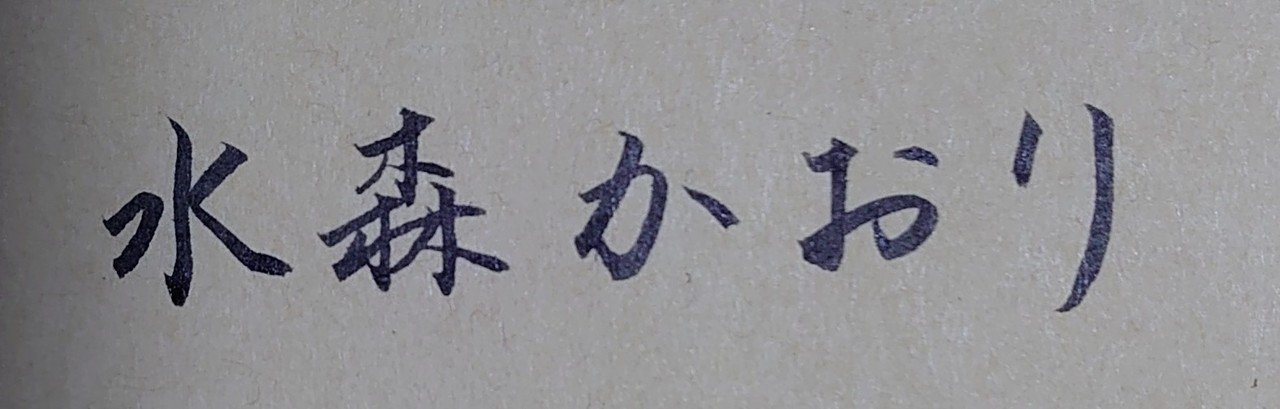 水森かおり